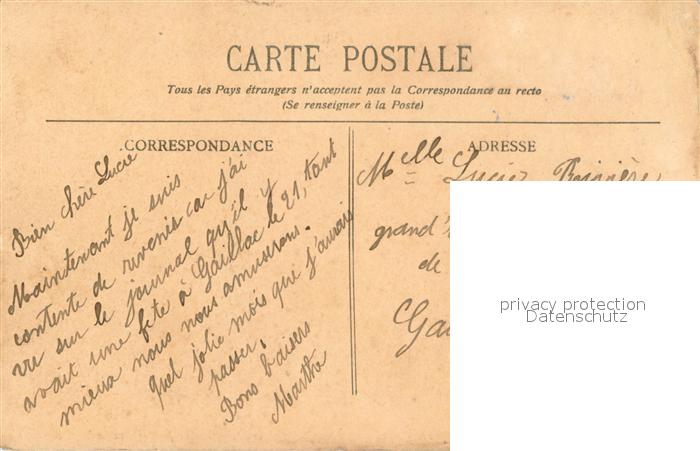 CARTE POSTALE
Tous les Pays étrangers n'acceptent pas la Correspondance au recto
(Se renseigner à la Poste)
CORRESPONDANCE
Bien chère Lucie
Maintenant je suis
contente de revenir car j'ai
vu sur le journal qu'il y
avait une fête à Gaillac le 21, tant
mieux nous nous amuserons.
quel jolie mois que j'aurais
passer.
Bons baisers
Marthe
ADRESSE
Melle Lucie Rivière
grand'
de
Ga
privacy protection
Datenschutz